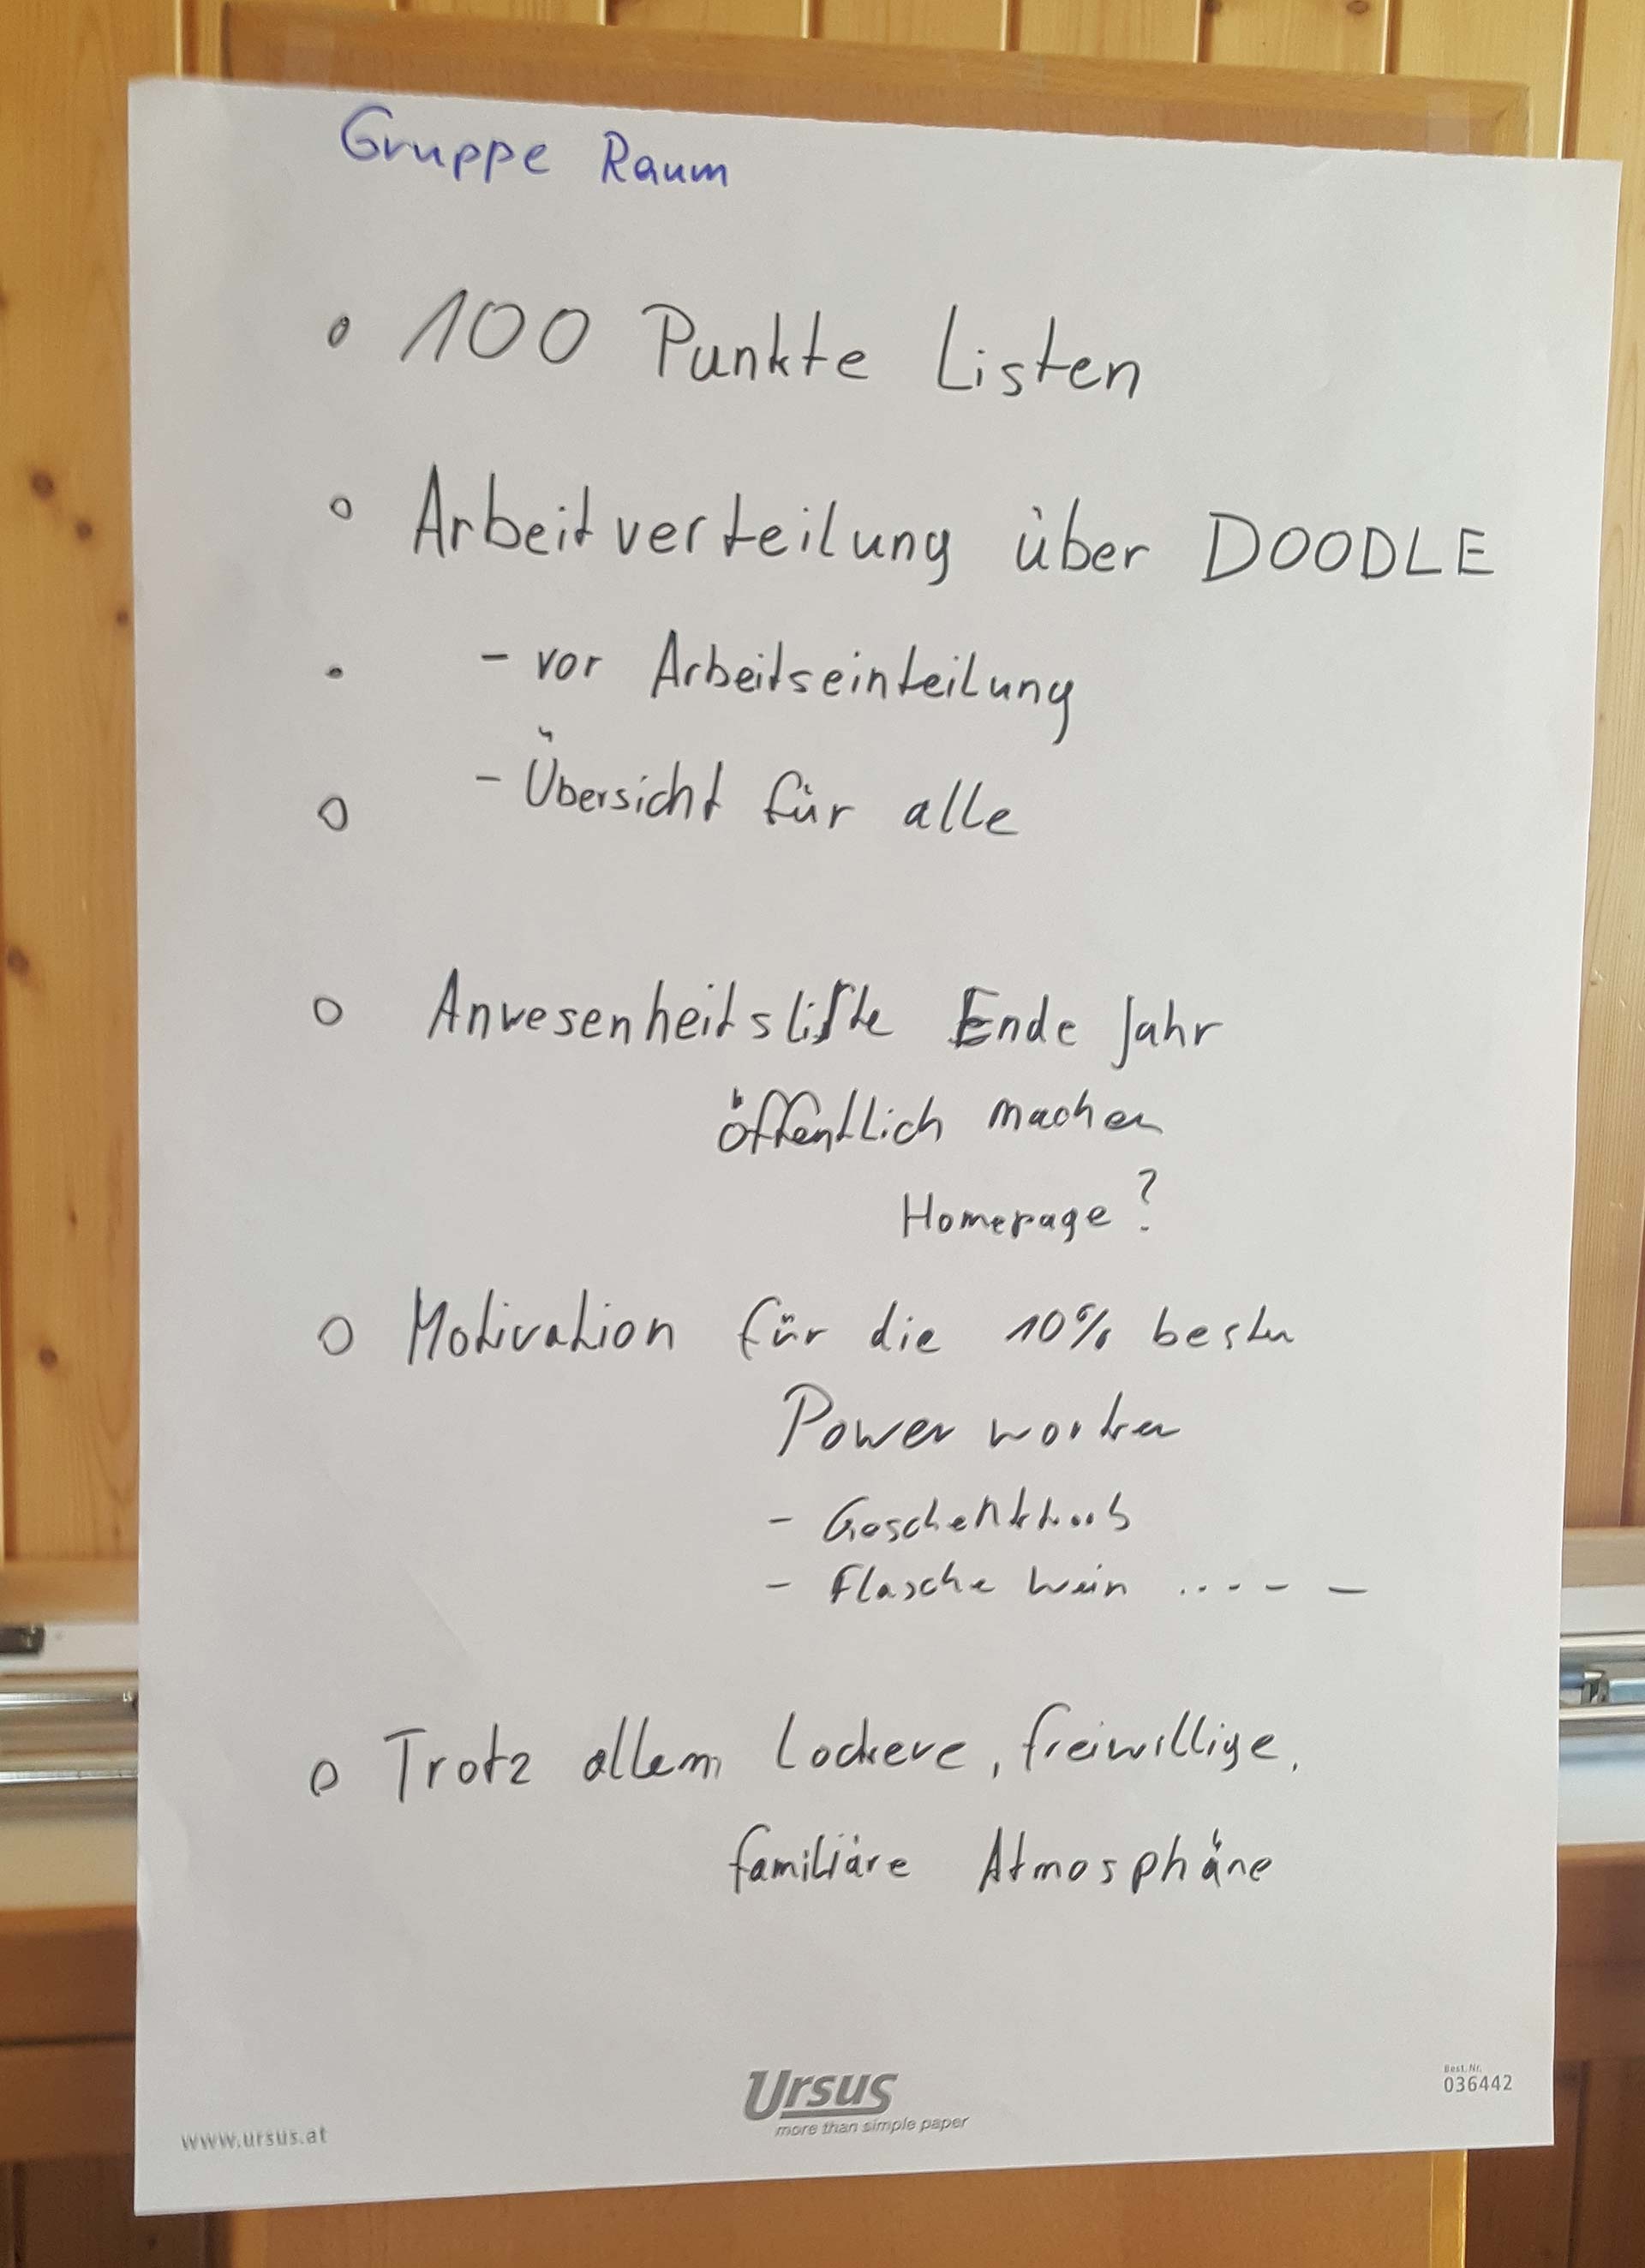 Gruppe Raum
o 100 Punkte Listen
o Arbeitverteilung über DOODLE
• - vor Arbeitseinteilung
o - Übersicht für alle
o Anwesenheitsliste Ende Jahr
öffentlich machen
Homepage?
o Motivation für die 10% besten
Power worker
- Geschenkkorb
- Flasche Wein .... - —
o Trotz allem lockere, freiwillige,
familiäre Atmosphäre
Ursus
more than simple paper
Best. Nr.
036442
www.ursus.at